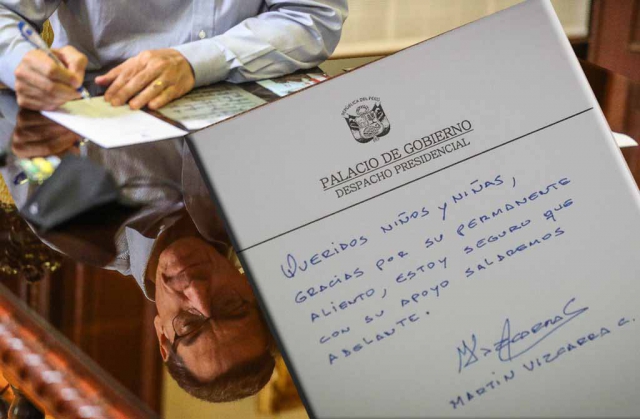 REPÚBLICA DEL PERÚ
PALACIO DE GOBIERNO
DESPACHO PRESIDENCIAL
QUERIDOS NIÑOS Y NIÑAS,
GRACIAS POR SU PERMANENTE
ALIENTO, ESTOY SEGURO QUE
CON SU APOYO SALDREMOS
ADELANTE.
MVizcarraC
MARTIN VIZCARRA C.